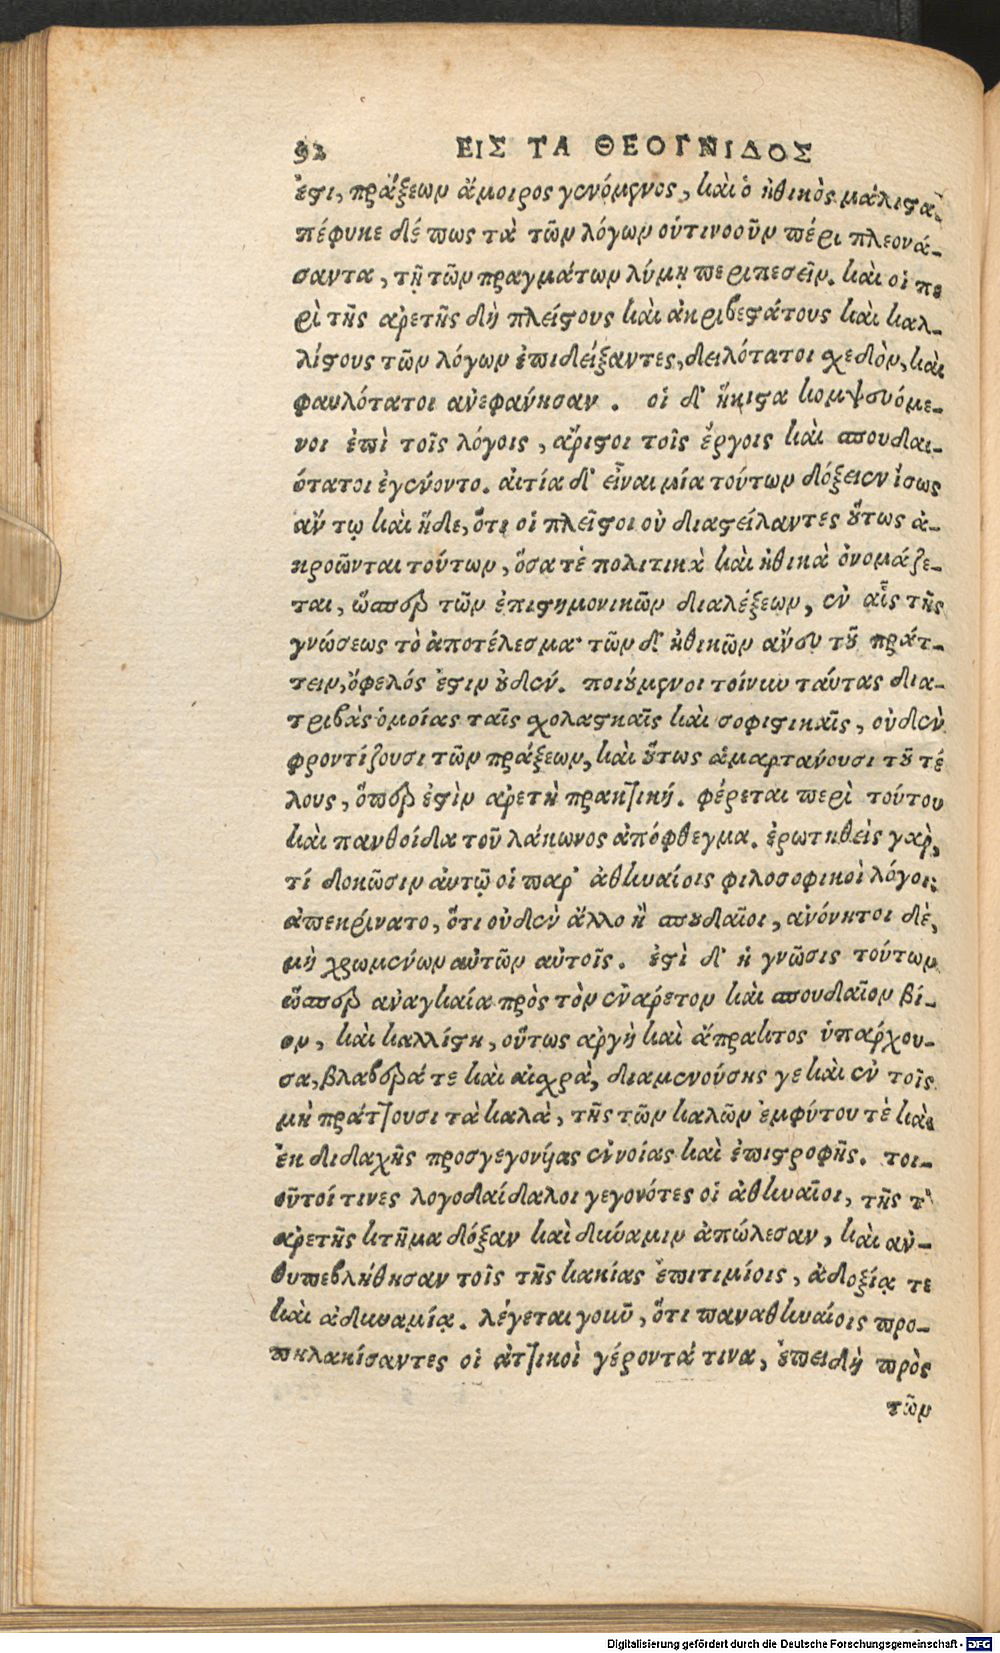 92 ΕΙΣ ΤΑ ΘΕΟΓΝΙΔΟΣ
ἐστι, πράξεων ἄμοιρος γενόμενος, καὶ ὁ ἠθικὸς μάλιστα.
πέφυκε δέ πως τὰ τῶν λόγων οὑτινοοῦν πέρι πλεονά-
σαντα, τῇ τῶν πραγμάτων λύμῃ περιπεσεῖν. καὶ οἱ πε
ρὶ τῆς ἀρετῆς δὴ πλείστους καὶ ἀκριβεστάτους καὶ καλ-
λίστους τῶν λόγων ἐπιδείξαντες, δειλότατοι σχεδὸν, καὶ
φαυλότατοι ἀνεφάνησαν. οἱ δ' ἥκιστα κομψευόμε-
νοι ἐπὶ τοῖς λόγοις, ἄριστοι τοῖς ἔργοις καὶ σπουδαι-
ότατοι ἐγένοντο. αἰτία δ' εἶναι μία τούτων δόξειεν ἴσως
ἄν τῳ καὶ ἥδε, ὅτι οἱ πλεῖστοι οὐ διαστείλαντες οὕτως ἀ-
κροῶνται τούτων, ὅσα τὲ πολιτικὰ καὶ ἠθικὰ ὀνομάζε-
ται, ὥσπερ τῶν ἐπιστημονικῶν διαλέξεων, ἐν αἷς τῆς
γνώσεως τὸ ἀποτέλεσμα· τῶν δ' ἠθικῶν ἄνευ τοῦ πράτ-
τειν, ὄφελός ἐστιν οὐδέν. ποιούμενοι τοίνυν ταύτας δια-
τριβὰς ὁμοίας ταῖς σχολαστικαῖς καὶ σοφιστικαῖς, οὐδὲν
φροντίζουσι τῶν πράξεων, καὶ οὕτως ἁμαρτάνουσι τοῦ τέ
λους, ὅπερ ἐστὶν ἀρετὴ πρακτική. φέρεται περὶ τούτου
καὶ πανθοίδα τοῦ λάκωνος ἀπόφθεγμα. ἐρωτηθεὶς γὰρ,
τί δοκῶσιν ἀυτῷ οἱ παρ' ἀθηναίοις φιλοσοφικοὶ λόγοι;
ἀπεκρίνατο, ὅτι οὐδὲν ἄλλο ἢ σπουδαῖοι, ἀνόνητοι δὲ,
μὴ χρωμένων αὐτῶν αὐτοῖς. ἐστὶ δ' ἡ γνῶσις τούτων
ὥσπερ ἀναγκαία πρὸς τὸν ἐνάρετον καὶ σπουδαῖον βί-
ον, καὶ καλλίστη, οὕτως ἀργὴ καὶ ἄπρακτος ὑπάρχου-
σα, βλαβερά τε καὶ αἰσχρὰ, διαμενούσης γε καὶ ἐν τοῖς
μὴ πράττουσι τὰ καλὰ, τῆς τῶν καλῶν ἐμφύτου τὲ καὶ
ἐκ διδαχῆς προσγεγονυίας ἐννοίας καὶ ἐπιστροφῆς. τοι-
οῦτοί τινες λογοδαίδαλοι γεγονότες οἱ ἀθηναῖοι, τῆς τ'
ἀρετῆς κτῆμα δόξαν καὶ δύναμιν ἀπώλεσαν, καὶ ἀν-
θυπεβλήθησαν τοῖς τῆς κακίας ἐπιτιμίοις, ἀδοξίᾳ τε
καὶ ἀδυναμίᾳ. λέγεται γοῦν, ὅτι παναθηναίοις προ-
πηλακίσαντες οἱ ἀττικοὶ γέροντά τινα, ἐπειδὴ πρὸς
τῶν
Digitalisierung gefördert durch die Deutsche Forschungsgemeinschaft - DFG